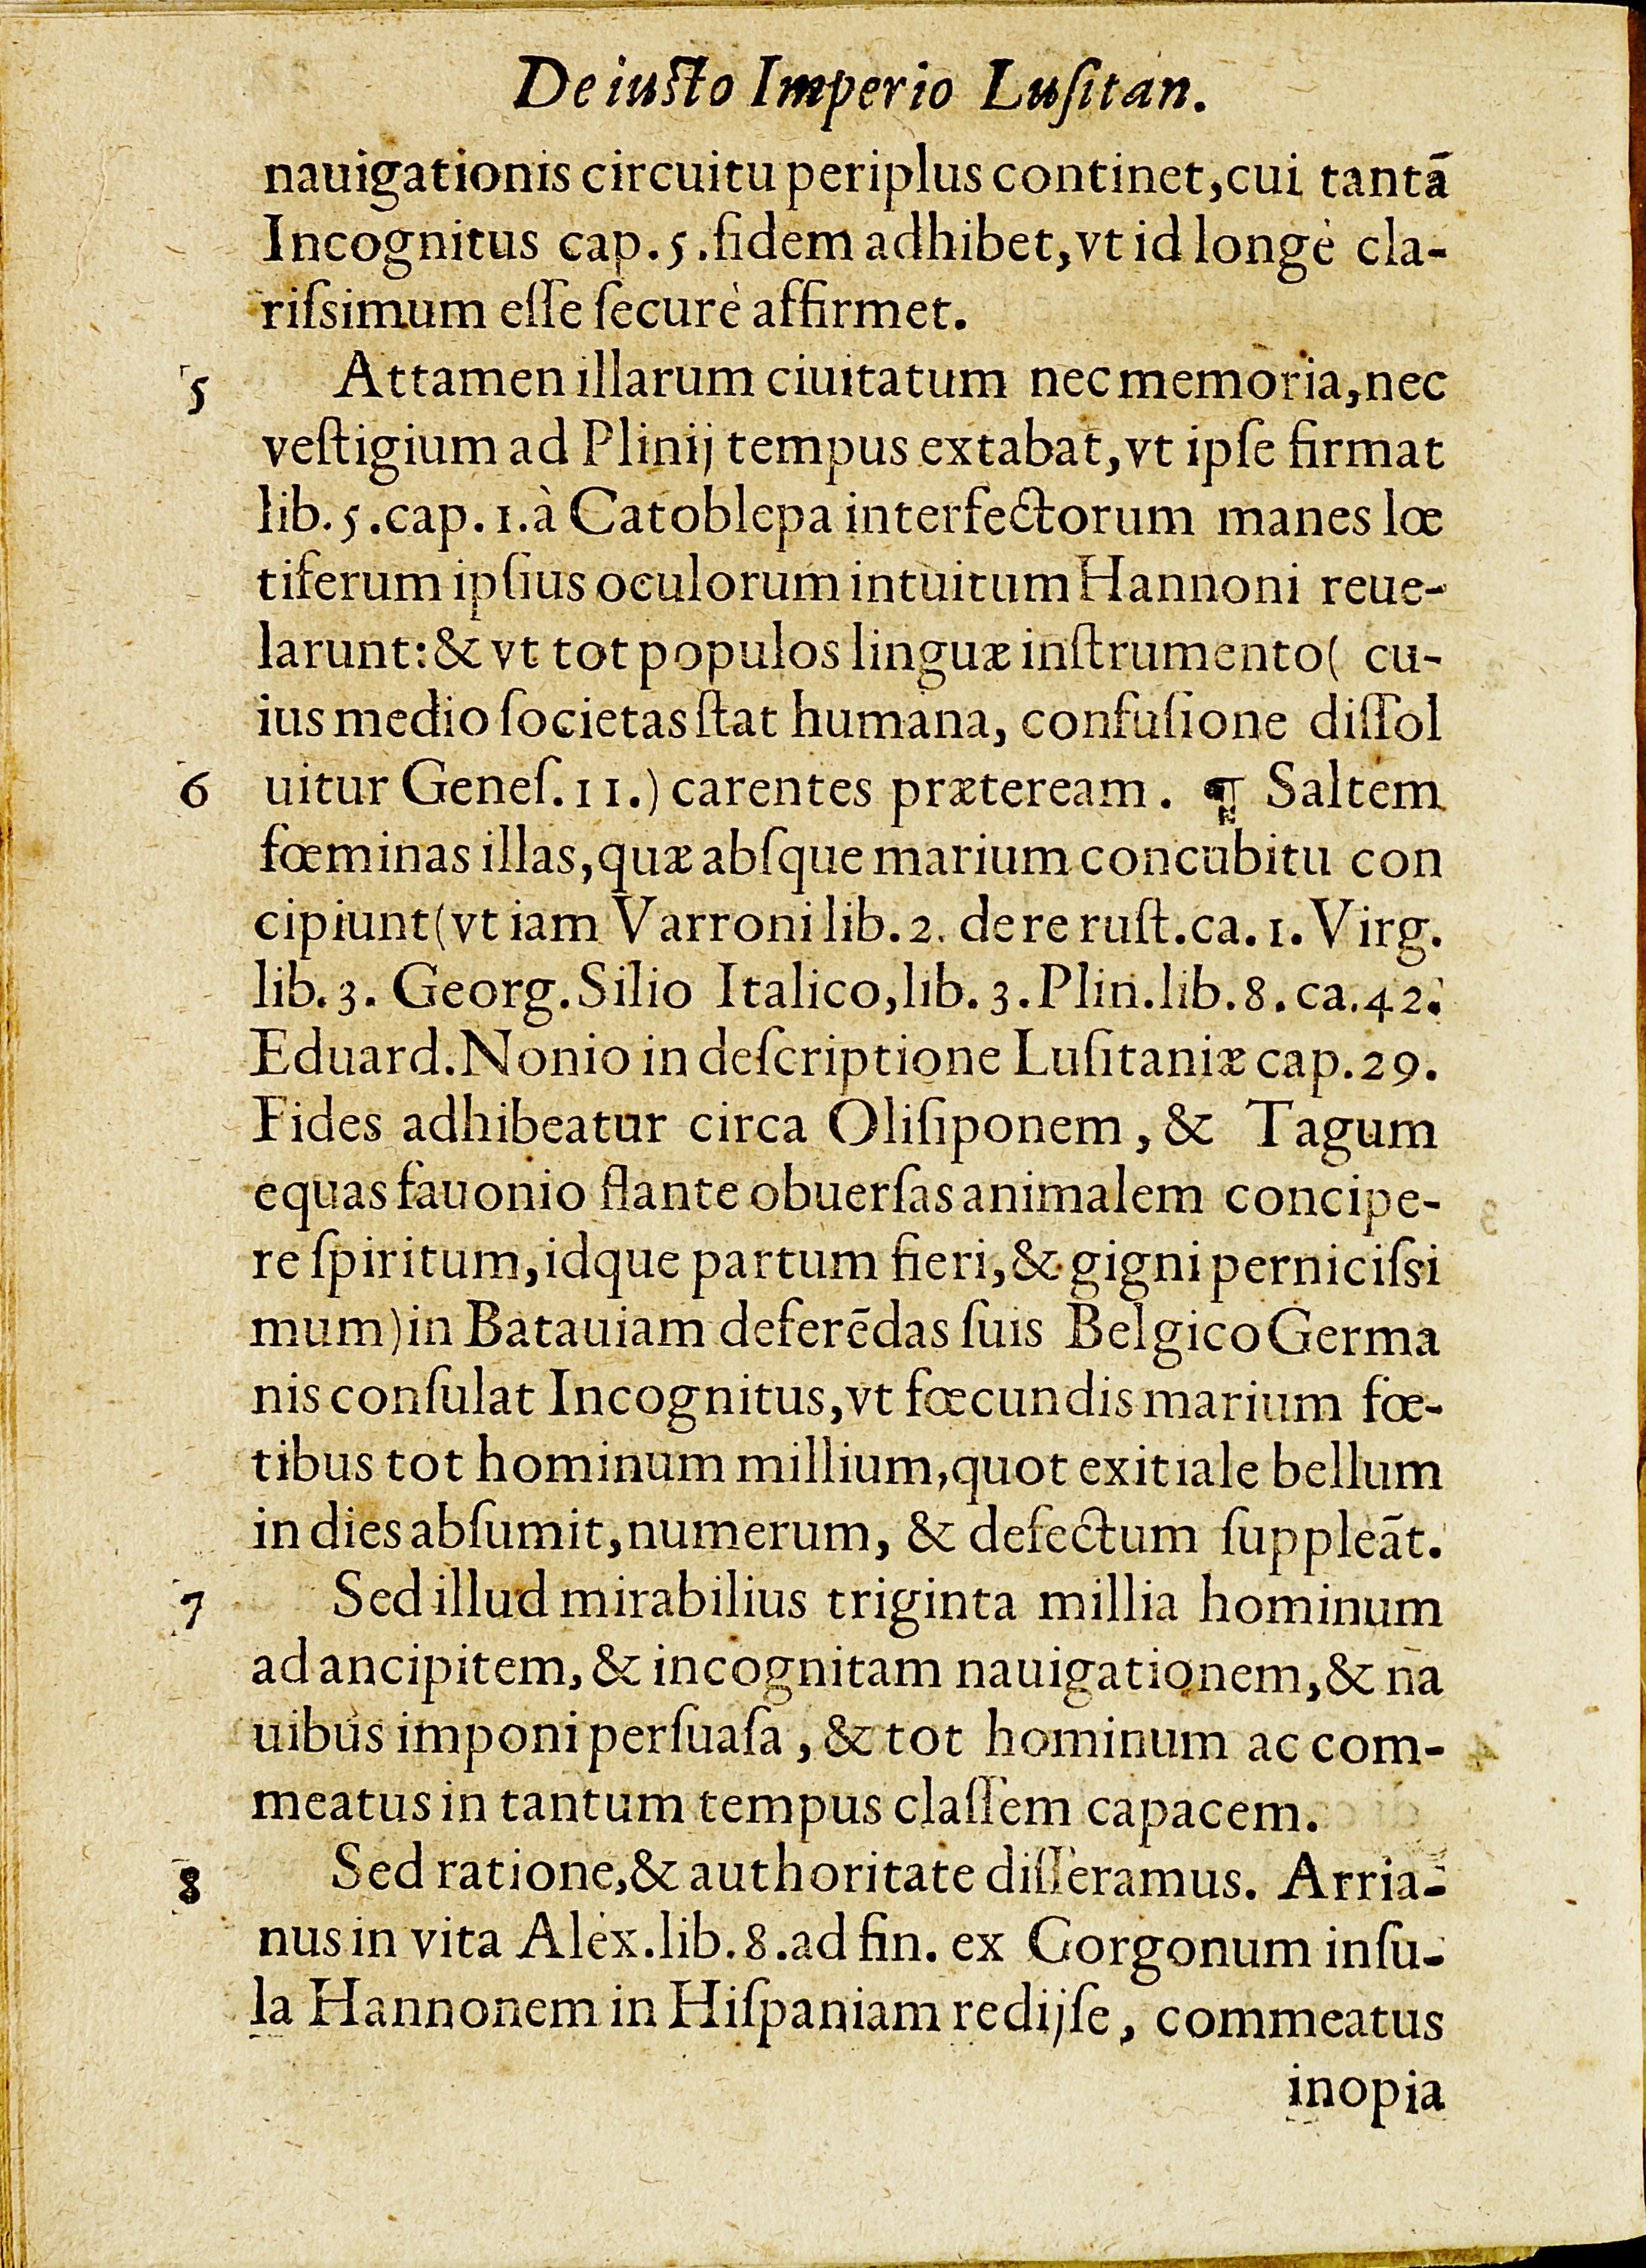 De iusto Imperio Lusitan.
nauigationis circuitu periplus continet, cui tantã
Incognitus cap. 5. fidem adhibet, vt id longè cla-
riſsimum eſſe ſecurè affirmet.
5 Attamen illarum ciuitatum nec memoria, nec
veſtigium ad Plinij tempus extabat, vt ipſe firmat
lib. 5. cap. 1. à Catoblepa interfectorum manes lœ
tiferum ipſius oculorum intuitum Hannoni reue-
larunt: & vt tot populos linguæ inſtrumento( cu-
ius medio ſocietas ſtat humana, confuſione diſſol
6 uitur Geneſ. 11.) carentes præteream. ¶ Saltem
fœminas illas, quæ abſque marium concubitu con
cipiunt(vt iam Varroni lib. 2. de re ruſt. ca. 1. Virg.
lib. 3. Georg. Silio Italico, lib. 3. Plin. lib. 8. ca. 42.
Eduard. Nonio in deſcriptione Luſitaniæ cap. 29.
Fides adhibeatur circa Oliſiponem, & Tagum
equas fauonio flante obuerſas animalem concipe-
re ſpiritum, idque partum fieri, & gigni perniciſsi
mum) in Batauiam deferẽdas ſuis Belgico Germa
nis conſulat Incognitus, vt fœcundis marium fœ-
tibus tot hominum millium, quot exitiale bellum
in dies abſumit, numerum, & defectum ſuppleãt.
7 Sed illud mirabilius triginta millia hominum
ad ancipitem, & incognitam nauigationem, & na
uibus imponi perſuaſa, & tot hominum ac com-
meatus in tantum tempus claſſem capacem.
8 Sed ratione, & authoritate diſſeramus. Arria-
nus in vita Alex. lib. 8. ad fin. ex Gorgonum inſu-
la Hannonem in Hiſpaniam redijſe, commeatus
inopia